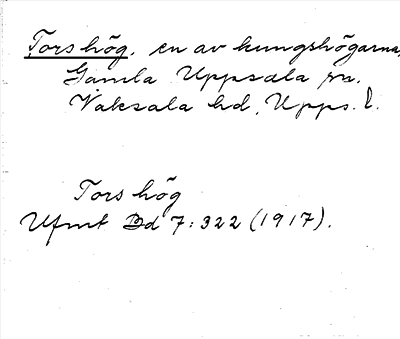 Tors hög, en av kungshögarna,
Gamla Uppsala sn.
Vaksala hd, Upps. l.
Tors hög
Ufmt Bd 7: 322 (1917).